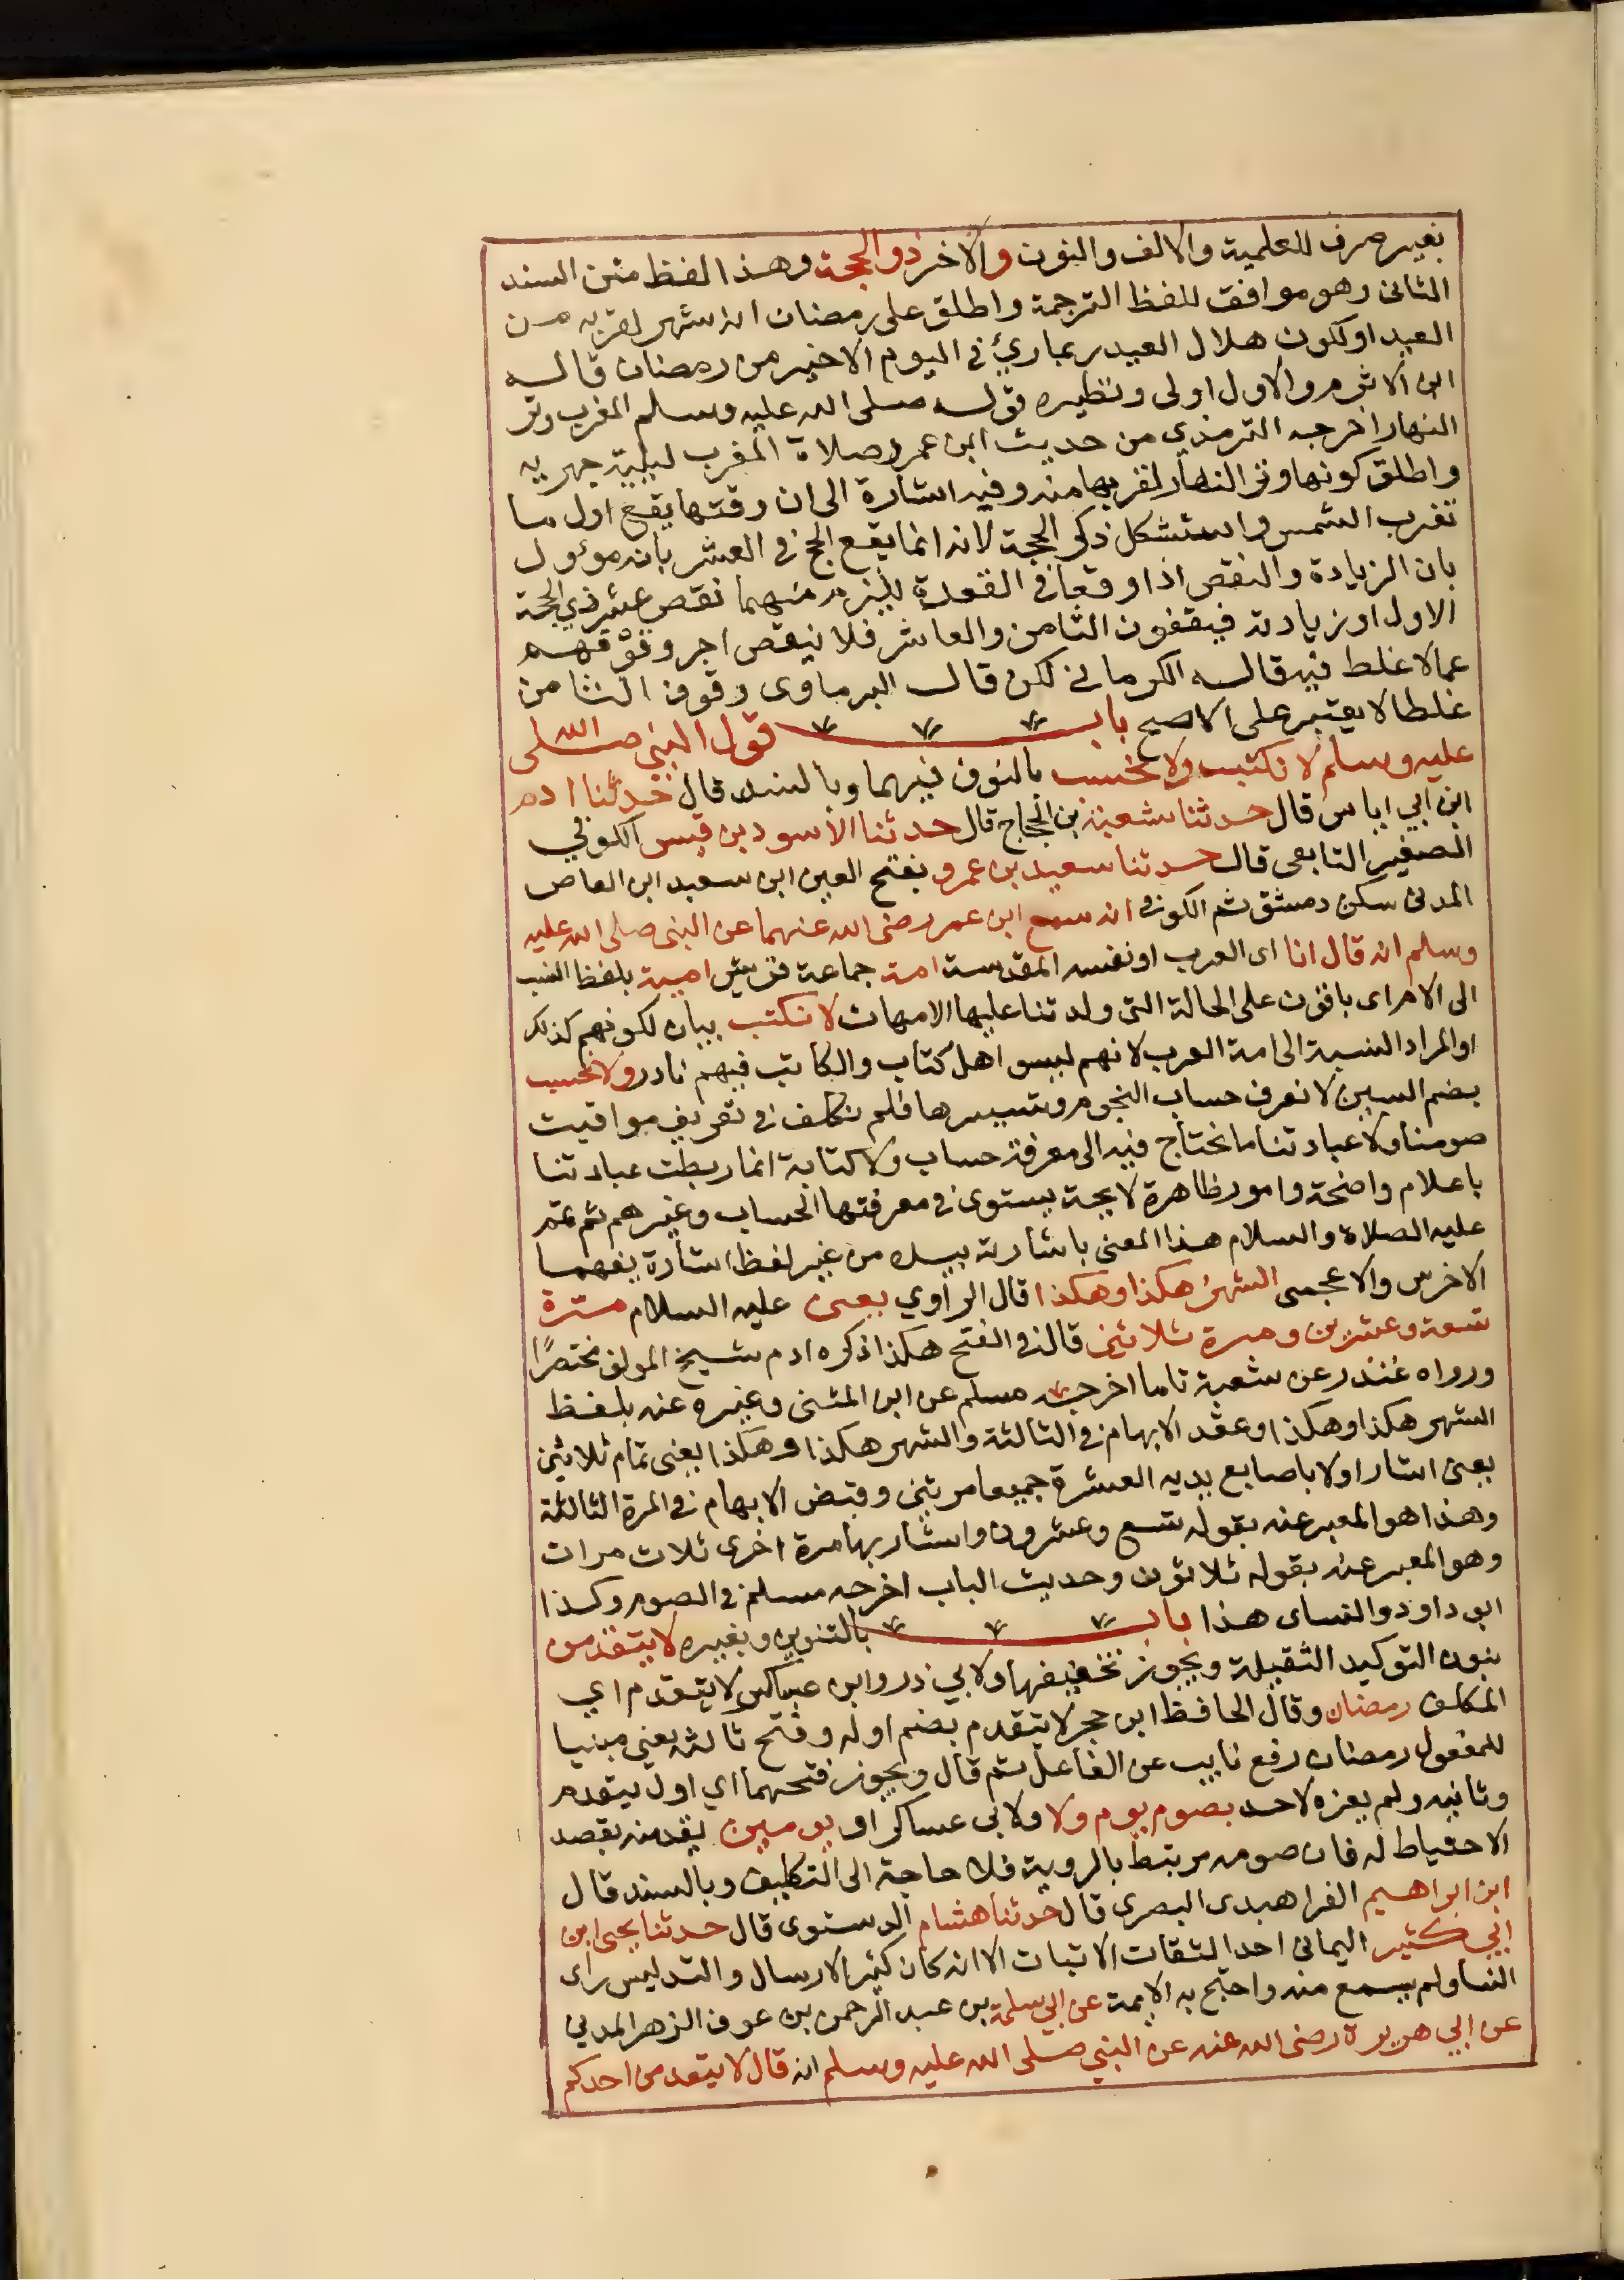 بغير صرف للعلمية والالف والنون والاخر ذو الحجة وهذا لفظ متن السند
الثانى وهو موافق للفظ الترجمة واطلق على رمضان انه شهر لقربه من
العيد او لكون هلال العيد ربما رئ في اليوم الاخير من رمضان قاله
ابن الاثرم والاول اولى ونظيره قوله صلى الله عليه وسلم المغرب وتر
النهار اخرجه الترمذي من حديث ابن عمر وصلاة المغرب ليلية جهريه
واطلق كونها وتر النهار لقربها منه وفيه اشارة الى ان وقتها يقع اول ما
تغرب الشمس واستشكل ذكر الحجة لانه انما يقع الحج في العشر بانه موءول
بان الزيادة والنقص اذا وقعا في القعدة يلزم منهما نقص عشر ذي الحجة
الاول او زيادته فيقفون الثامن والعاشر فلا ينقص اجر وقوفهم
عما لا غلط فيه قاله الكرمانى لكن قال البرماوى وقوف الثامن
غلطا لا يعتبر على الاصح باب قول النبي صلى الله
عليه وسلم لا نكتب ولا نحسب بالنون فيهما وبالسند قال حدثنا ادم
ابن ابي اياس قال حدثنا شعبة بن الحجاج قال حدثنا الاسود بن قيس الكوفي
الصغير التابعى قال حدثنا سعيد بن عمرو بفتح العين ابن سعيد ابن العاص
المدنى سكن دمشق ثم الكوفة انه سمع ابن عمر رضى الله عنهما عن النبى صلى الله عليه
وسلم انه قال انا اى العرب او نفسه المقدسة امة جماعة قريش امية بلفظ النسب
الى الام اى باقون على الحالة التى ولدتنا عليها الامهات لا نكتب بيان لكونهم كذلك
او المراد النسبة الى امة العرب لانهم ليسو اهل كتاب والكاتب فيهم نادر ولا نحسب
بضم السين لا نعرف حساب النجوم وتسييرها فلم نكلف في تعريف مواقيت
صومنا ولا عبادتنا ما نحتاج فيه الى معرفة حساب ولا كتابة انما ربطت عبادتنا
باعلام واضحة وامور ظاهرة لايحة يستوى في معرفتها الحساب وغيرهم ثم تمم
عليه الصلاة والسلام هذا المعنى باشارته بيده من غير لفظ اشارة يفهمها
الاخرس والاعجمى الشهر هكذا وهكذا قال الراوي يعنى عليه السلام مرة
تسعة وعشرين ومرة ثلاثين قال في الفتح هكذا ذكره ادم شيخ المولف مختصرًا
ورواه غندر عن شعبة تاما اخرجه مسلم عن ابن المثنى وغيره عنه بلفظ
الشهر هكذا وهكذا وعقد الابهام في الثالثة والشهر هكذا وهكذا يعنى تمام ثلاثين
يعنى اشار اولا باصابع يديه العشرة جميعا مرتين وقبض الابهام في المرة الثالثة
وهذا هو المعبر عنه بقوله تسع وعشرون واشار بها مرة اخرى ثلاث مرات
وهو المعبر عنه بقوله ثلاثون وحديث الباب اخرجه مسلم في الصوم وكذا
ابو داود والنساى هذا باب بالتنوين وبغيره لا يتقدمن
بنون التوكيد الثقيلة ويجوز تخفيفها ولابي ذر وابن عساكر لا يتقدم اي
المكلف رمضان وقال الحافظ ابن حجر لا يتقدم بضم اوله وفتح ثالثه يعني مبنيا
للمفعول رمضان رفع نايب عن الفاعل ثم قال ويجوز فتحهما اي اول يتقدم
وثانيه ولم يعزه لاحد بصوم يوم ولا ولابى عساكر او يومين يقدمنه بقصد
الاحتياط له فان صومه مرتبط بالروية فلا حاجة الى التكليف وبالسند قال
ابن ابراهيم الفراهيدى البصرى قال حدثنا هشام الدستوى قال حدثنا يحيى ابن
ابي كثير اليمانى احد الثقات الاثبات الا انه كان كثير الارسال والتدليس راى
انسا ولم يسمع منه واحتج به الايمة عن ابي سلمة بن عبد الرحمن بن عوف الزهر المدني
عن ابي هريرة رضى الله عنه عن النبي صلى الله عليه وسلم انه قال لا يتقدمن احدكم